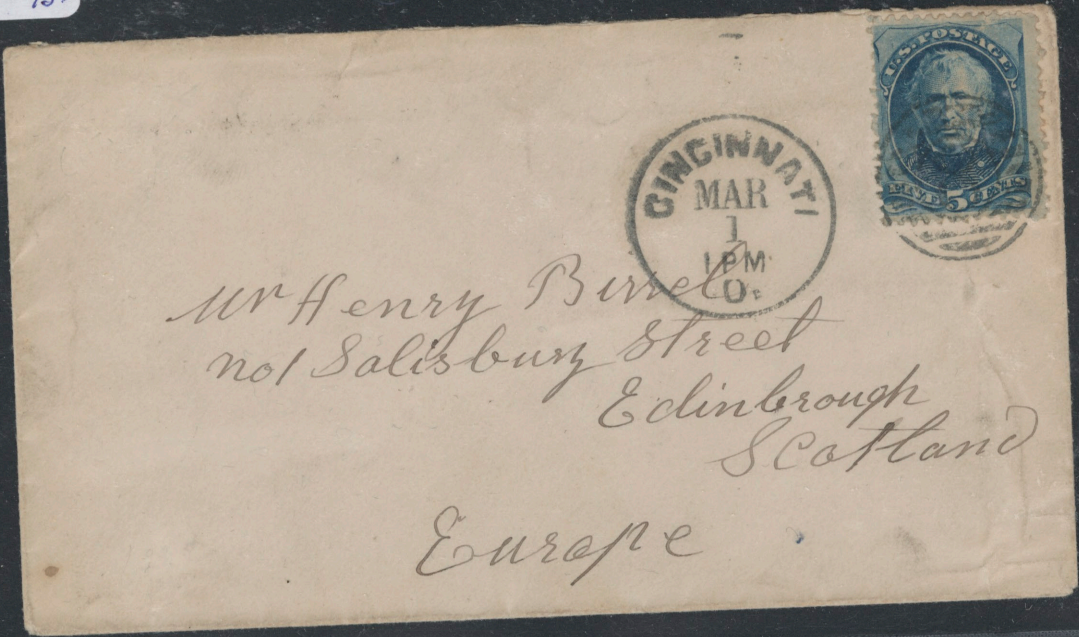 U.S. POSTAGE
FIVE 5 CENTS
CINCINNATI
MAR
1
1 PM
O.
Mr Henry Birrel
No 1 Salisbury Street
Edinbrough
Scotland
Europe